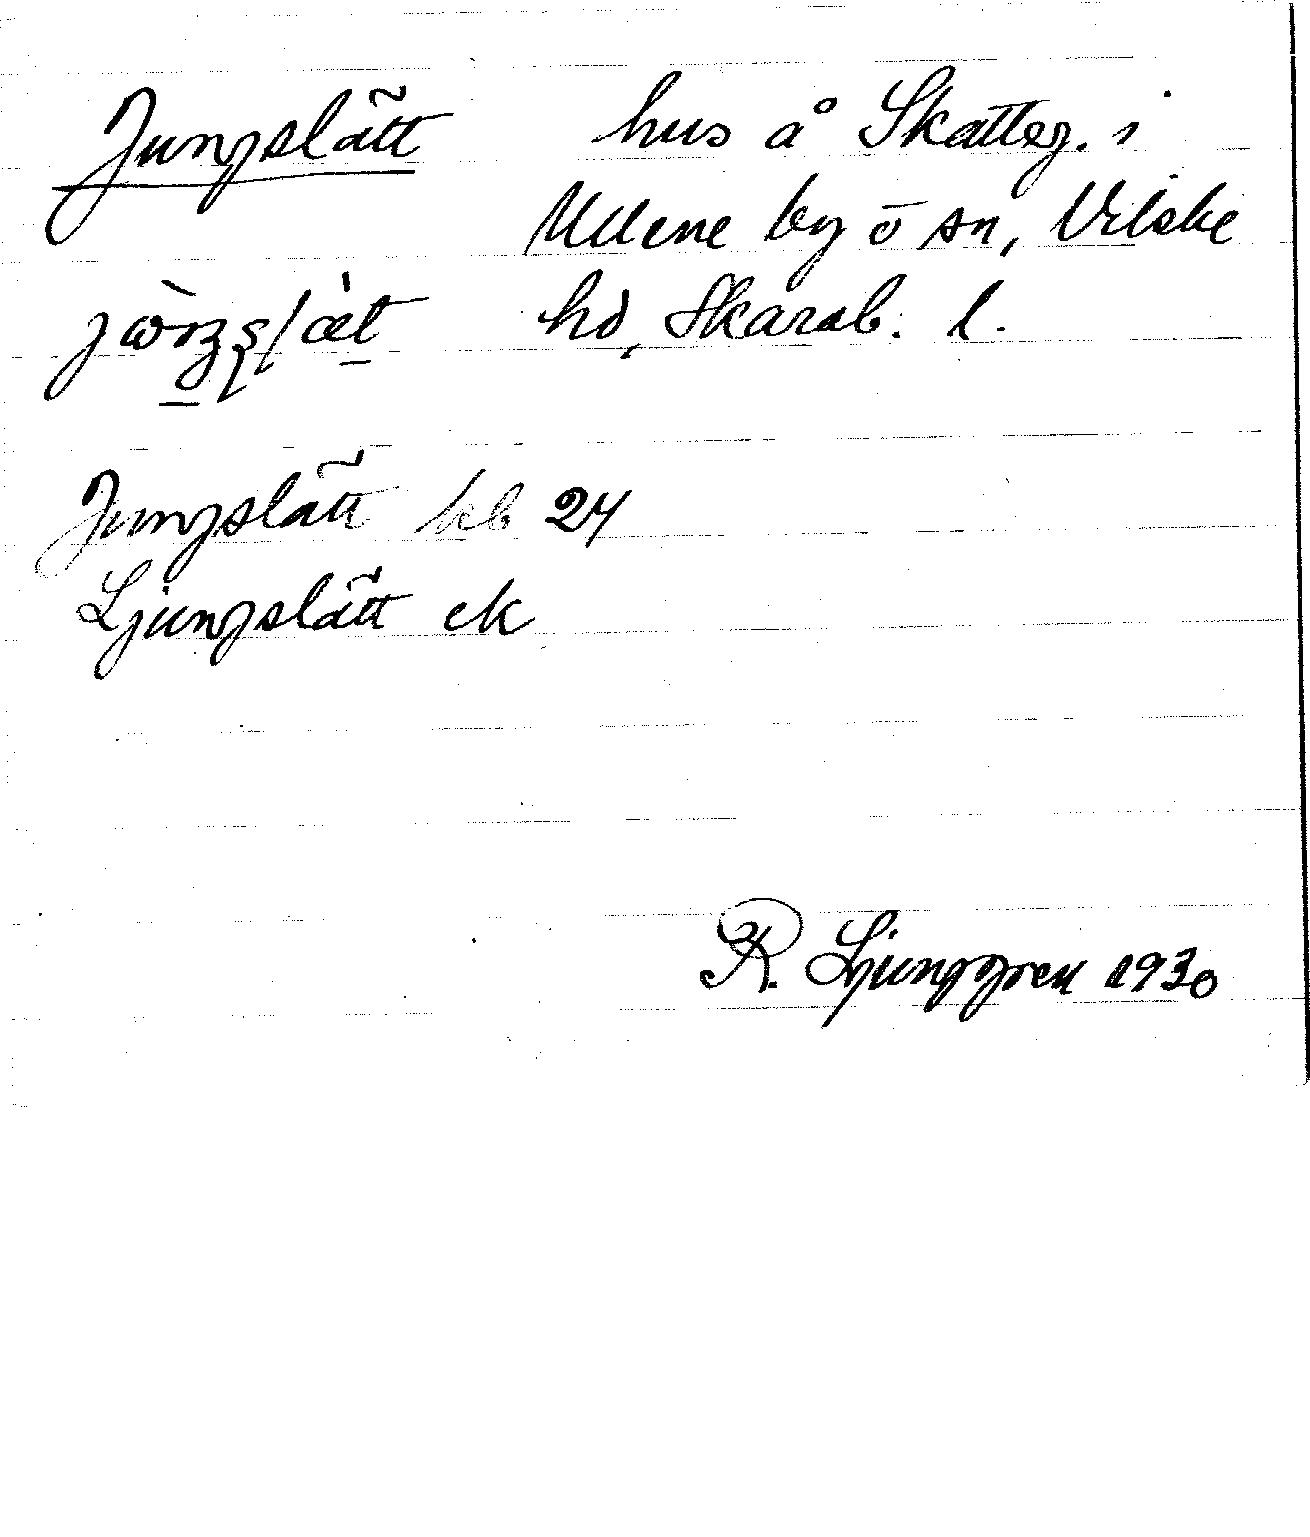 Jungslätt hus å Skatteg. i
Ullene by o sn, Vilske
hd, Skarab. l.
Jungslätt kb 24
Ljungslätt ek
R. Ljunggren 1930